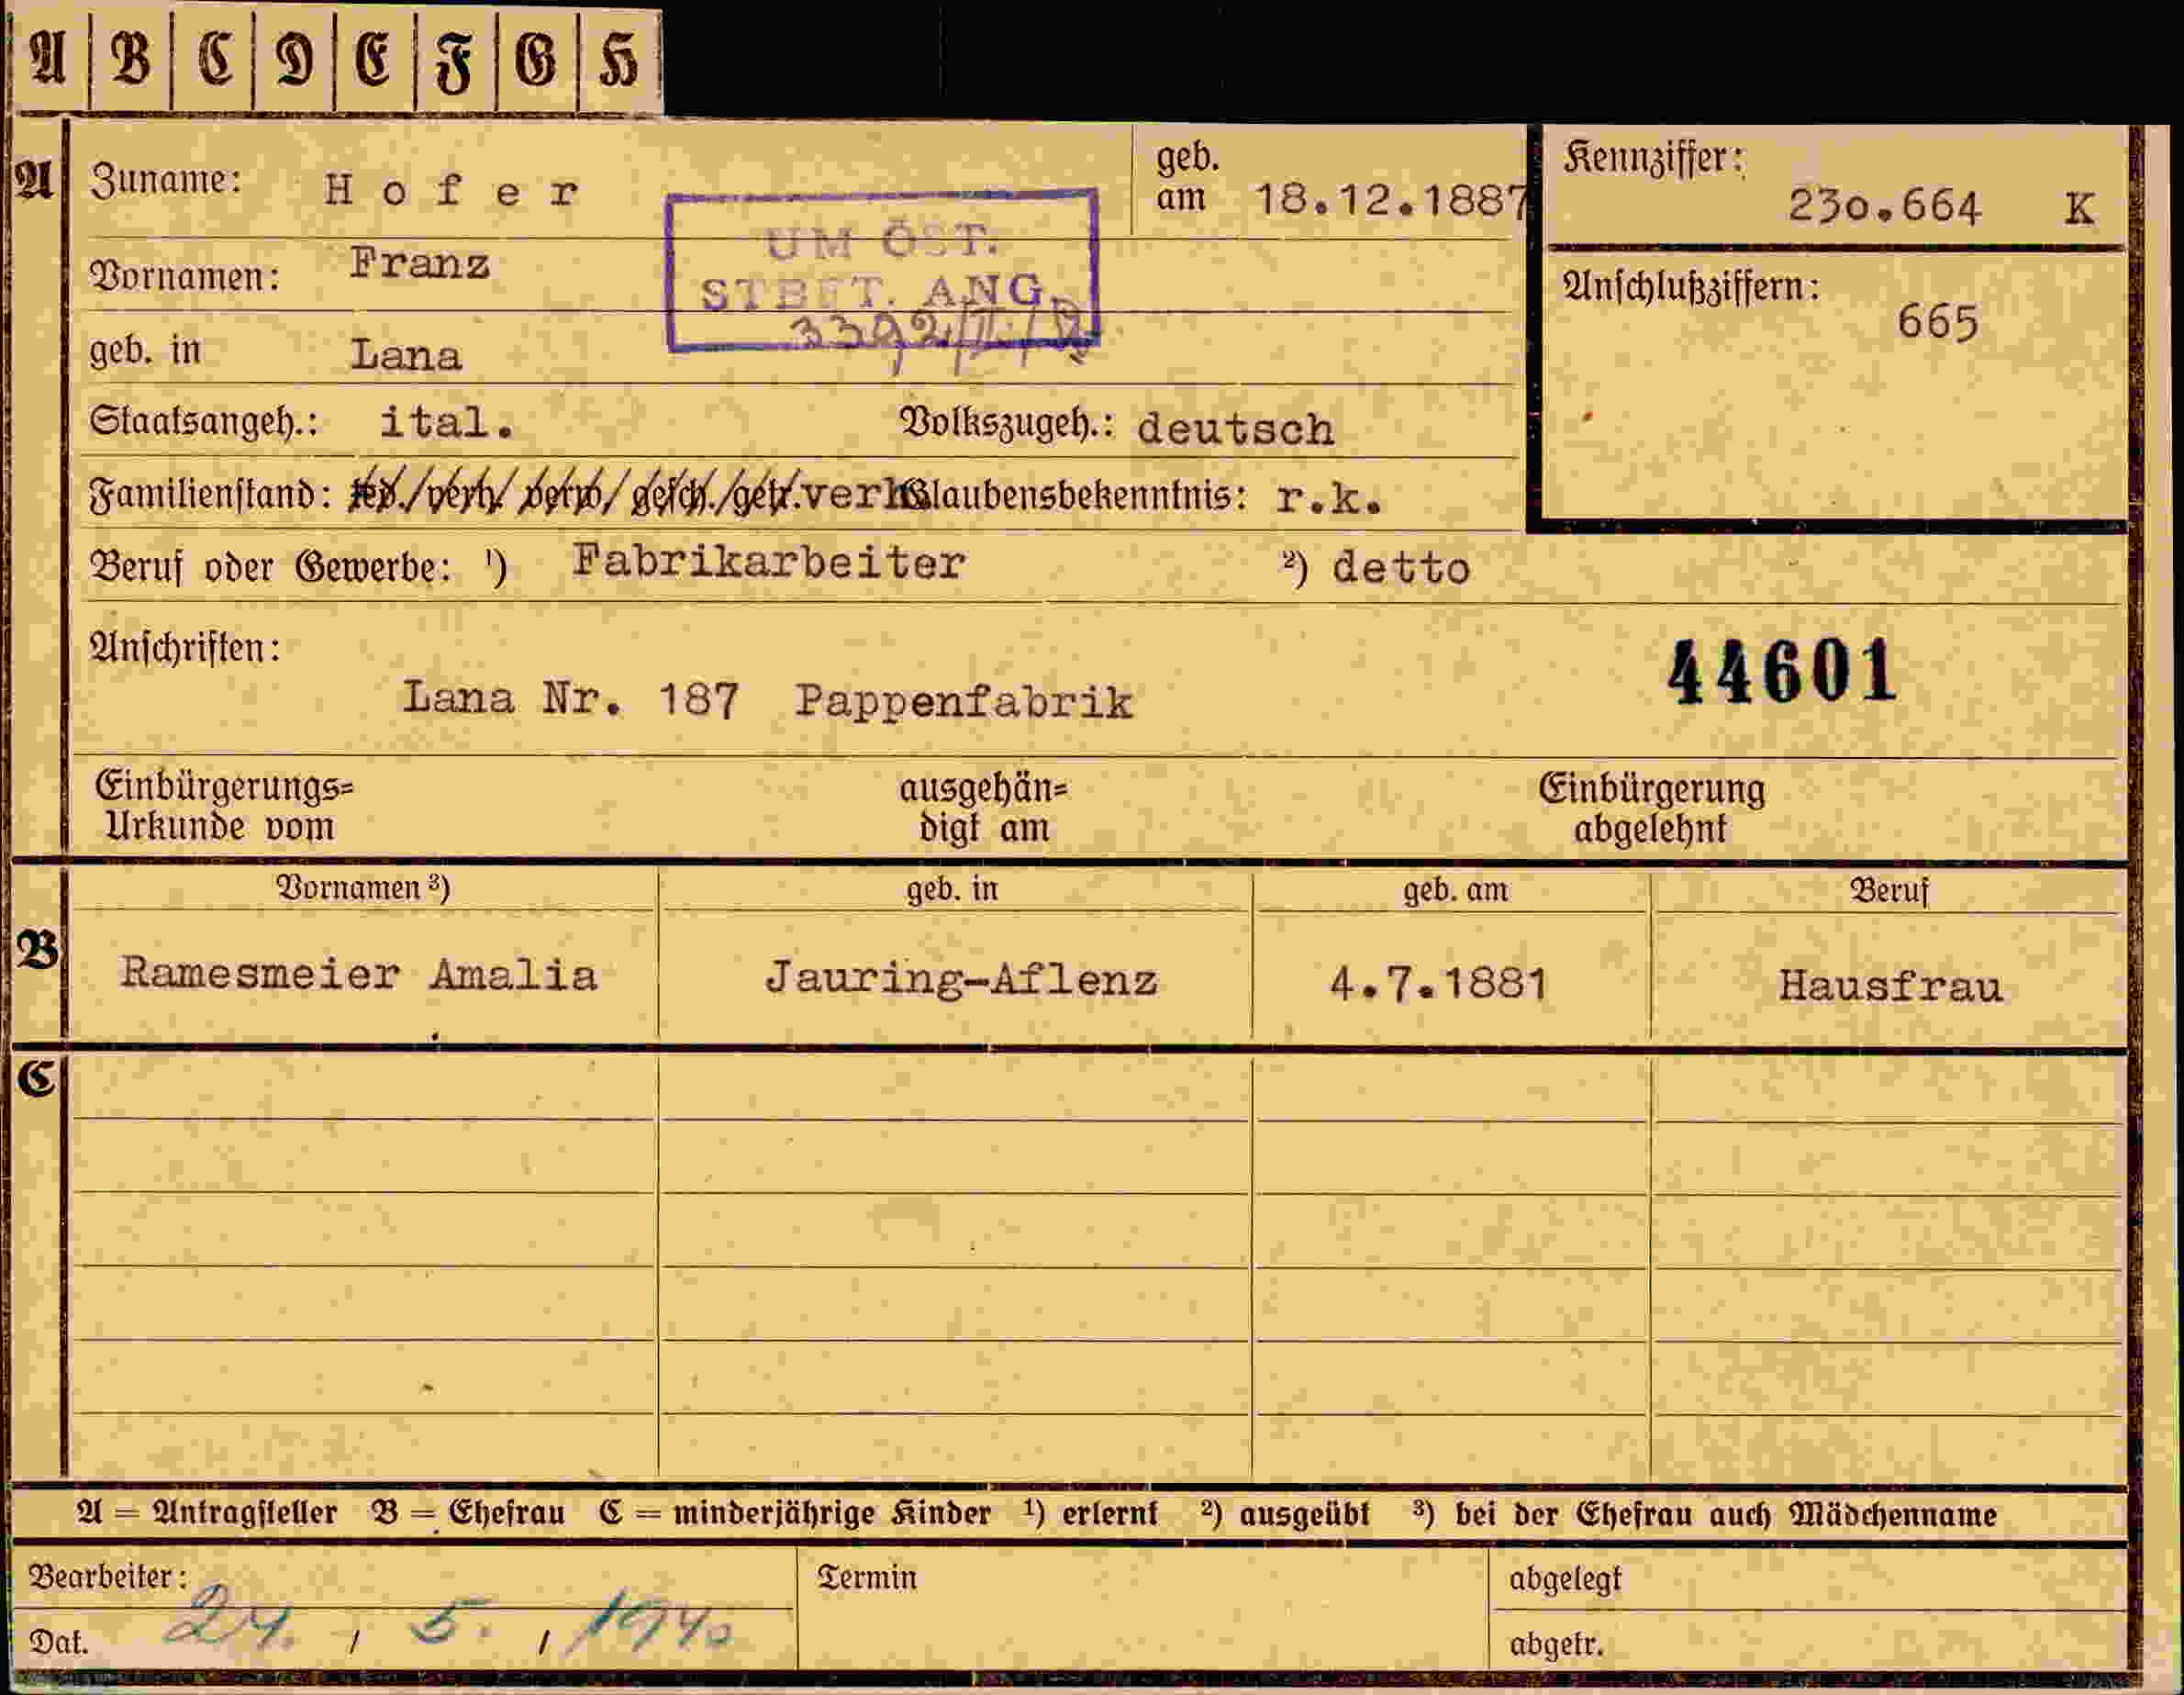 A B C D E F G H
A Zuname: Hofer geb. am 18.12.1887 Kennziffer: 230.664 K
UM ÖST.
Vornamen: Franz
STBFT. ANG. Anschlußziffern: 665
geb. in Lana
Staatsangeh.: ital. Volkszugeh.: deutsch
Familienstand: led./verh/verw/gesch./getr. verh. Glaubensbekenntnis: r.k.
Beruf oder Gewerbe: ¹) Fabrikarbeiter ²) detto
Anschriften: 44601
Lana Nr. 187 Pappenfabrik
Einbürgerungs= ausgehän= Einbürgerung
Urkunde vom digt am abgelehnt
B Vornamen ³) geb. in geb. am Beruf
Ramesmeier Amalia Jauring-Aflenz 4.7.1881 Hausfrau
C
A = Antragsteller B = Ehefrau C = minderjährige Kinder ¹) erlernt ²) ausgeübt ³) bei der Ehefrau auch Mädchenname
Bearbeiter: Termin abgelegt
Dat. 24. / 5. / 1940 abgetr.